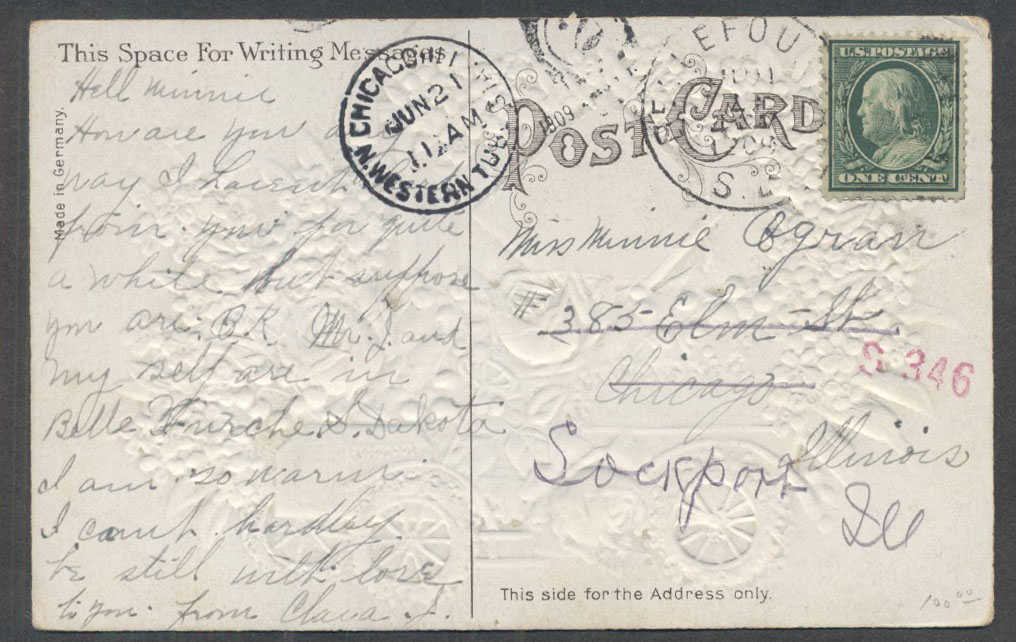 This Space For Writing Messages
Hell Minnie
How are you any
way I havent
from you for quite
a while but suppose
you are O.K. Mr. J. and
my self are in
Belle Fourche S. Dakota
I am so warm
I can't hardley
be still with love
to you. from Clara J.
Made in Germany.
CHICAGO, ILL.
JUN 21
11 AM
N. WESTERN
1909
EFOU
S.D.
POST CARD
U.S. POSTAGE
ONE CENT
Miss Minnie Ogran
# 385 Elm St
Chicago
S 346
Illinois
Lockport
Ill
This side for the Address only.
100 00